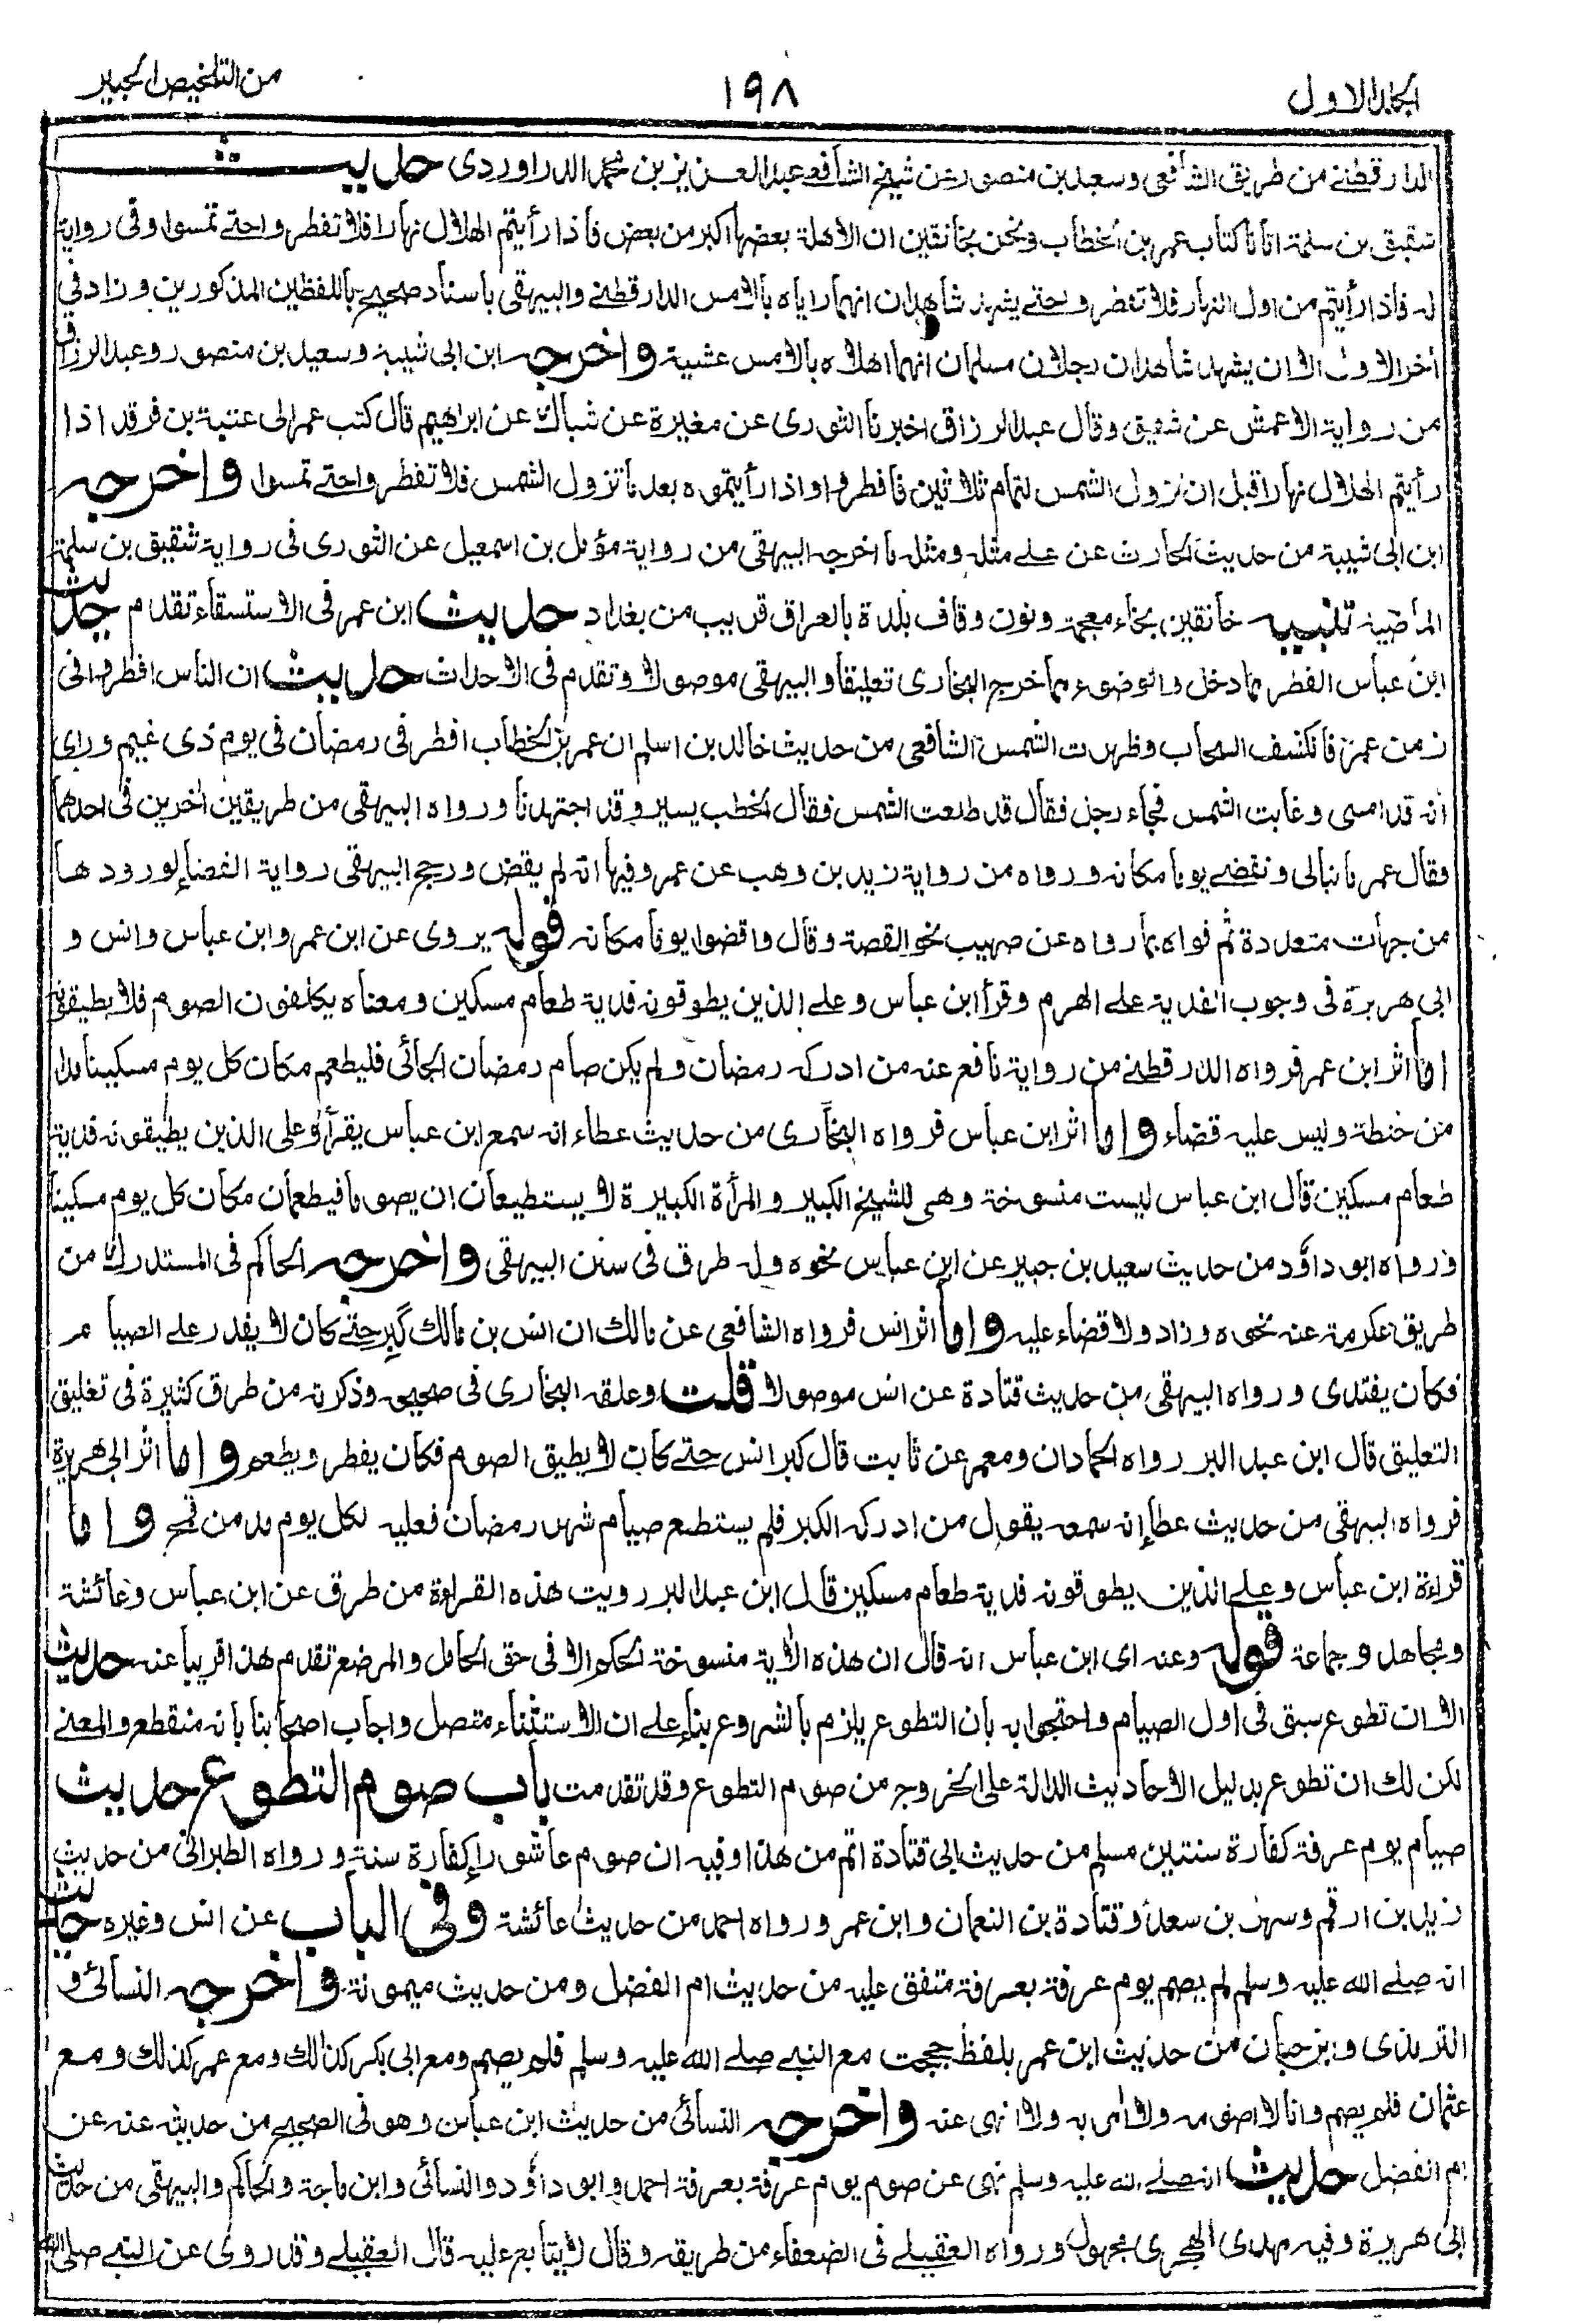 الجلد الاول ١٩٨ من التلخيص الحبير
الدارقطنے من طريق الشافعى وسعيد بن منصور عن شيخ الشافعے عبد العزيز بن محمد الدراوردى حديث
شقيق بن سلمة اتانا كتاب عمر بن الخطاب ونحن بخانقين ان الاهلة بعضها اكبر من بعض فاذا رأيتم الهلال نهارا فلا تفطروا حتے تمسوا وفى رواية
له فاذا رأيتم من اول النهار فلا تفطروا حتے يشهد شاهدان انهما راياه بالامس الدارقطنے والبيهقى باسناد صحيح باللفظين المذكورين وزاد فى
اخر الاول الا ان يشهد شاهدان رجلان مسلمان انهما اهلاه بالامس عشية واخرجه ابن ابى شيبة وسعيد بن منصور وعبد الرزاق
من رواية الاعمش عن شقيق وقال عبد الرزاق اخبرنا الثورى عن مغيرة عن شباك عن ابراهيم قال كتب عمر الى عتبة بن فرقد اذا
رأيتم الهلال نهارا قبل ان تزول الشمس لتمام ثلاثين فافطروا واذا رأيتموه بعد ما تزول الشمس فلا تفطروا حتے تمسوا واخرجه
ابن ابى شيبة من حديث الحارث عن علے مثله ومثله ما اخرجه البيهقى من رواية مؤمل بن اسمعيل عن الثورى فى رواية شقيق بن سلمة
الماضية تنبيه خانقين بخاء معجمة ونون وقاف بلدة بالعراق قريب من بغداد حديث ابن عمر فى الاستسقاء تقدم حديث
ابن عباس الفطر مما دخل والوضوء مما خرج البخارى تعليقا والبيهقى موصولا وتقدم فى الاحداث حديث ان الناس افطروا فى
زمن عمر فانكشف السحاب وظهرت الشمس الشافعى من حديث خالد بن اسلم ان عمر بن الخطاب افطر فى رمضان فى يوم ذى غيم وراى
انه قد امسى وغابت الشمس فجاء رجل فقال قد طلعت الشمس فقال الخطب يسير وقد اجتهدنا ورواه البيهقى من طريقين اخرين فى احدهما
فقال عمر ما نبالى ونقضے يوما مكانه ورواه من رواية زيد بن وهب عن عمر وفيها انه لم يقض ورجح البيهقى رواية القضاء لورودها
من جهات متعددة ثم قواه بما رواه عن صهيب نحو القصة وقال واقضوا يوما مكانه قوله يروى عن ابن عمر وابن عباس وانس و
ابى هريرة فى وجوب الفدية علے الهرم وقرأ ابن عباس وعلے الذين يطوقونه فدية طعام مسكين ومعناه يكلفون الصوم فلا يطيقونه
اما اثر ابن عمر فرواه الدارقطنے من رواية نافع عنه من ادركه رمضان ولم يكن صام رمضان الجائى فليطعم مكان كل يوم مسكينا مدا
من حنطة وليس عليه قضاء واما اثر ابن عباس فرواه البخارى من حديث عطاء انه سمع ابن عباس يقرأ وعلى الذين يطيقونه فدية
طعام مسكين قال ابن عباس ليست منسوخة وهى للشيخ الكبير والمرأة الكبيرة لا يستطيعان ان يصوما فيطعمان مكان كل يوم مسكينا
ورواه ابو داؤد من حديث سعيد بن جبير عن ابن عباس نحوه وله طرق فى سنن البيهقى واخرجه الحاكم فى المستدرك من
طريق عكرمة عنه نحوه وزاد ولا قضاء عليه واما اثر انس فرواه الشافعى عن مالك ان انس بن مالك كبر حتے كان لا يقدر علے الصيام
فكان يفتدى ورواه البيهقى من حديث قتادة عن انس موصولا قلت وعلقه البخارى فى صحيحه وذكرته من طرق كثيرة فى تغليق
التعليق قال ابن عبد البر رواه الحمادان ومعمر عن ثابت قال كبر انس حتے كان لا يطيق الصوم فكان يفطر ويطعم واما اثر ابى هريرة
فرواه البيهقى من حديث عطاء انه سمعه يقول من ادركه الكبر فلم يستطع صيام شهر رمضان فعليه لكل يوم مد من قمح واما
قراءة ابن عباس وعلے الذين يطوقونه فدية طعام مسكين قال ابن عبد البر رويت هذه القراءة من طرق عن ابن عباس وعائشة
ومجاهد وجماعة قوله وعنه اى ابن عباس انه قال ان هذه الاية منسوخة الحكم الا فى حق الحامل والمرضع تقدم هذا قريبا عنه حديث
الا ان تطوع سبق فى اول الصيام واحتجوا به بان التطوع يلزم بالشروع بناء علے ان الاستثناء متصل واجاب اصحابنا بانه منقطع والمعنے
لكن لك ان تطوع بدليل الاحاديث الدالة على الخروج من صوم التطوع وقد تقدمت باب صوم التطوع حديث
صيام يوم عرفة كفارة سنتين مسلم من حديث ابى قتادة اتم من هذا وفيه ان صوم عاشوراء كفارة سنة ورواه الطبرانى من حديث
زيد بن ارقم وسهل بن سعد وقتادة بن النعمان وابن عمر ورواه احمد من حديث عائشة وفى الباب عن انس وغيره حديث
انه صلے الله عليه وسلم لم يصم يوم عرفة بعرفة متفق عليه من حديث ام الفضل ومن حديث ميمونة واخرجه النسائى و
الترمذى وابن حبان من حديث ابن عمر بلفظ حججت مع النبے صلے الله عليه وسلم فلم يصم ومع ابى بكر كذلك ومع عمر كذلك ومع
عثمان فلم يصم وانا لا اصومه ولا امر به ولا انهى عنه واخرجه النسائى من حديث ابن عباس وهو فى الصحيح من حديثه عنه عن
ام الفضل حديث انه صلے الله عليه وسلم نهى عن صوم يوم عرفة بعرفة احمد وابو داؤد والنسائى وابن ماجة والحاكم والبيهقى من حديث
ابى هريرة وفيه مهدى الهجرى مجهول ورواه العقيلے فى الضعفاء من طريقه وقال لا يتابع عليه قال العقيلے وقد روى عن النبے صلى الله